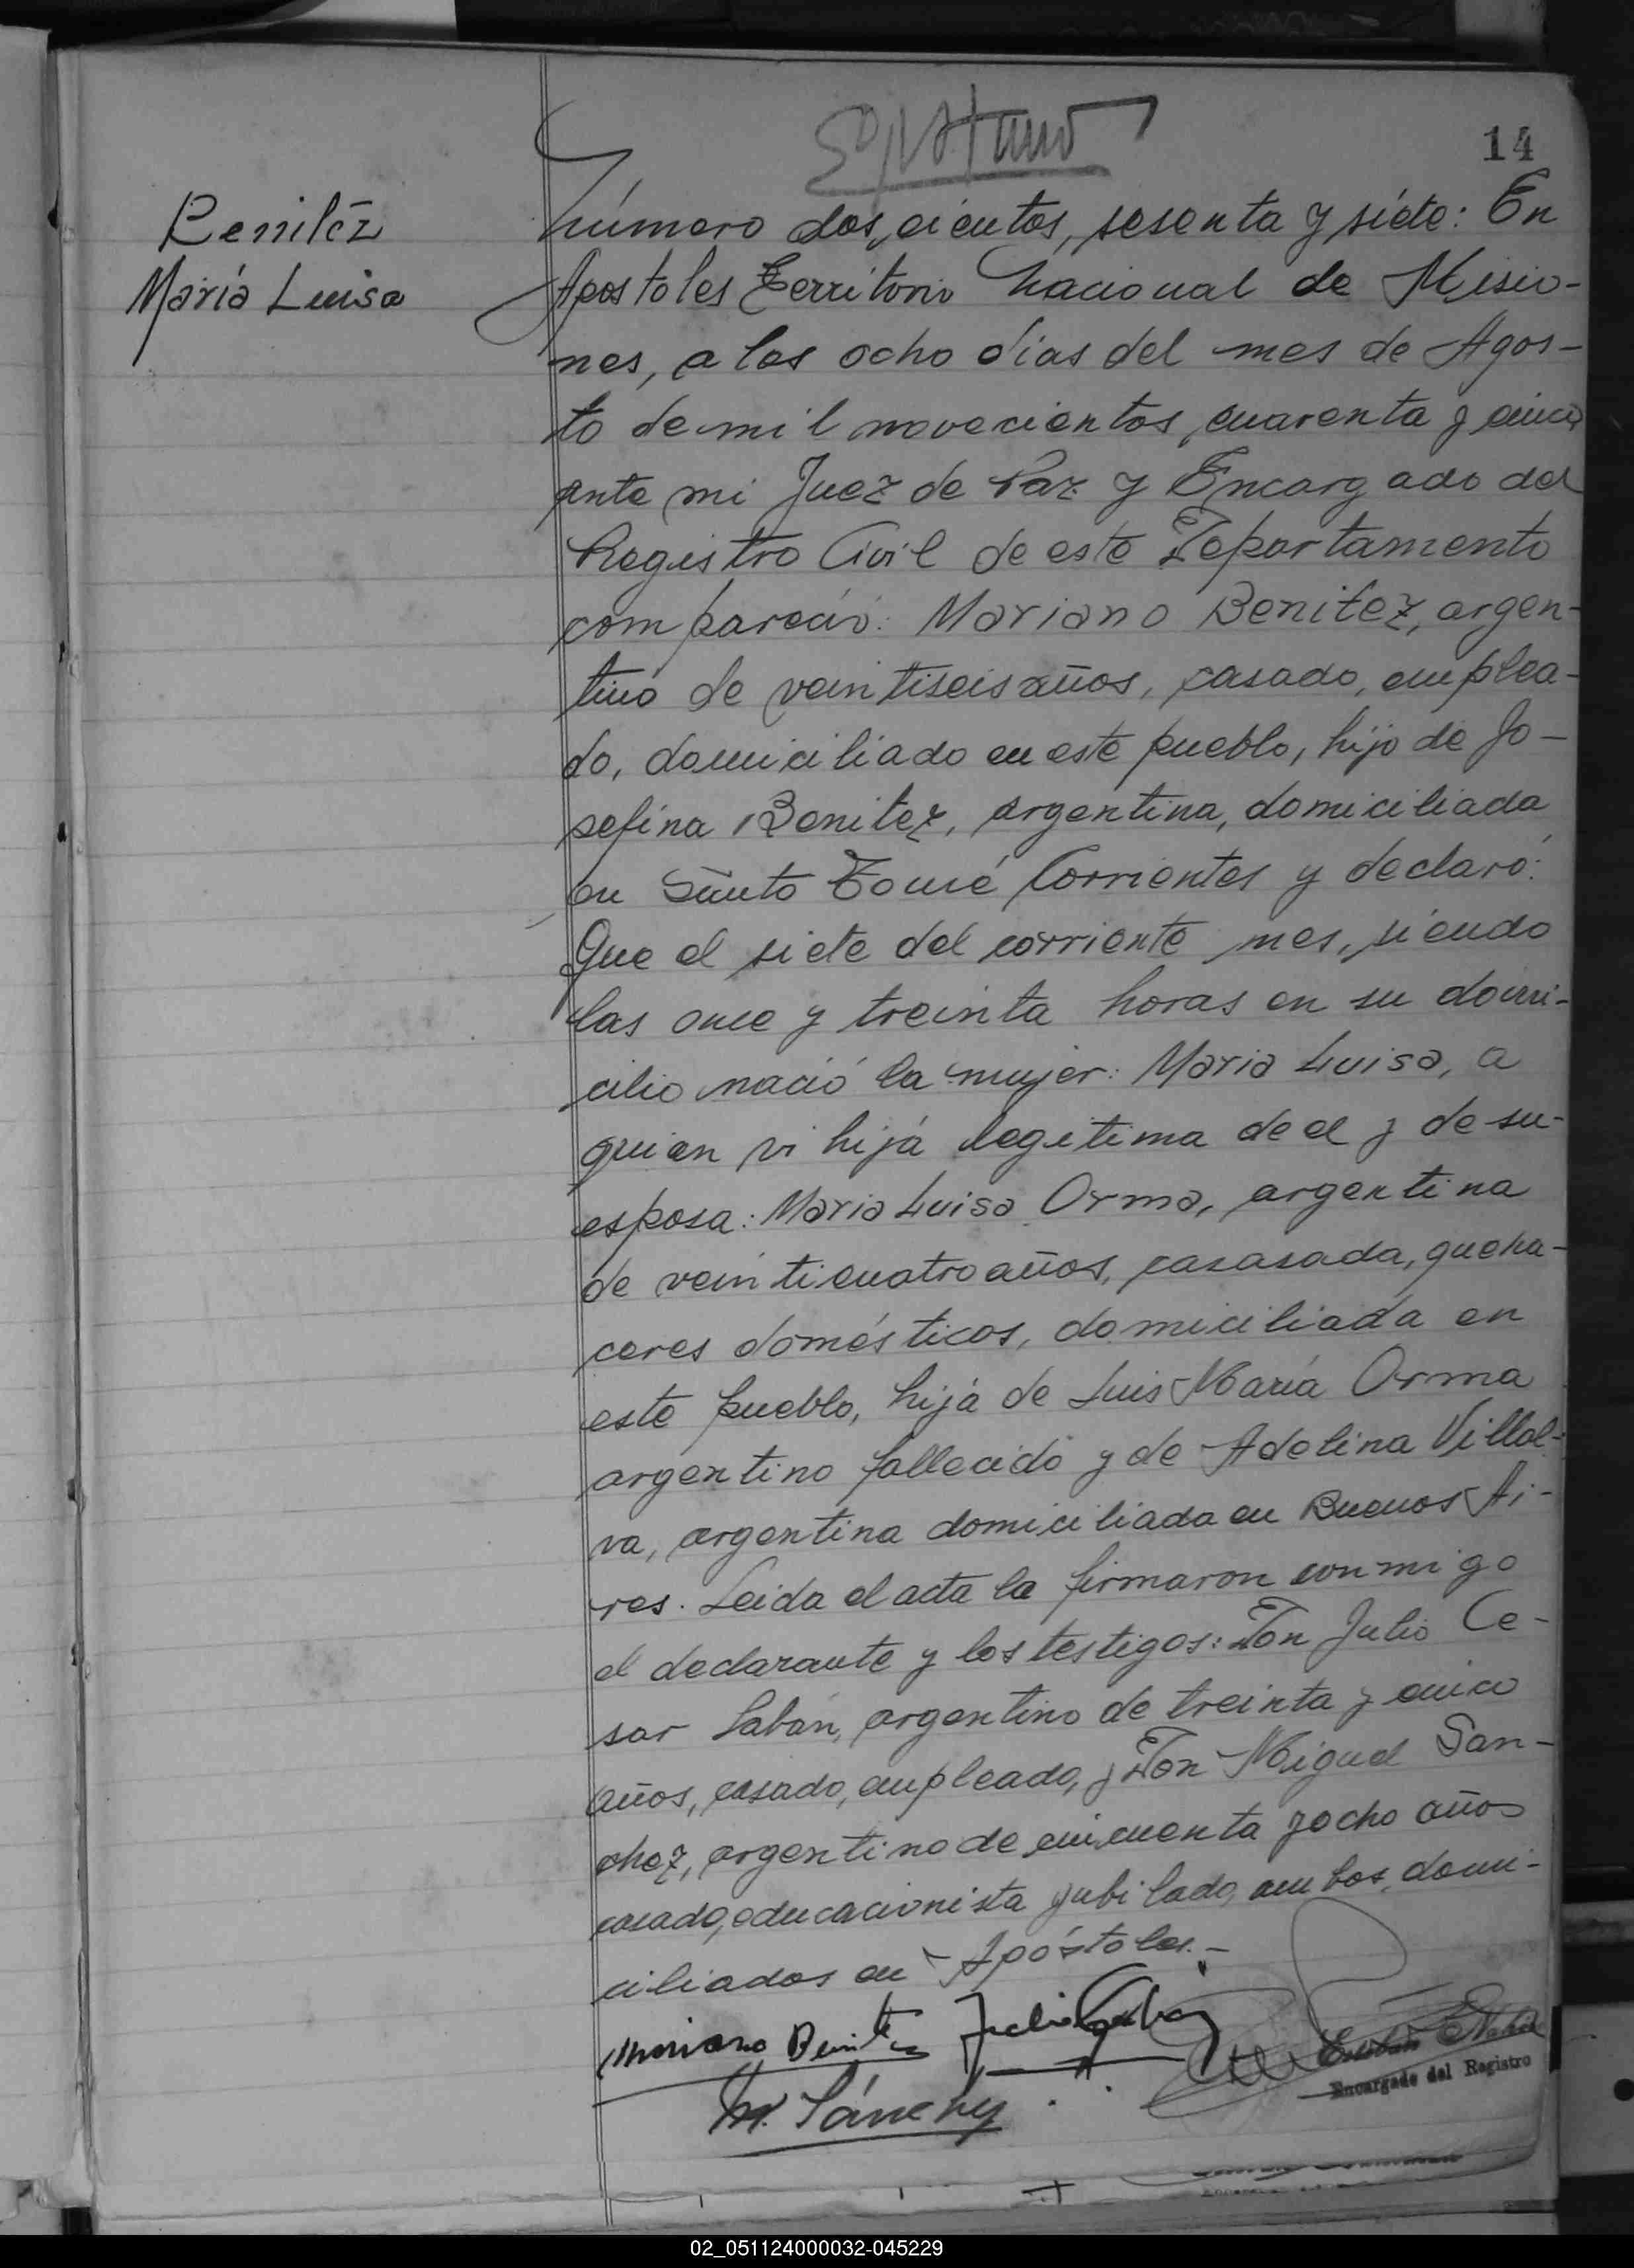 14
Benitéz
María Luisa
Número dos,cientos, sesenta y siete: En
Apostoles Territorio Nacional de Misio-
nes, a los ocho dias del mes de Agos-
to de mil novecientos, cuarenta y cinco
ante mi Juez de Paz y Encargado del
Registro Civil de este Departamento
compareció: Mariano Benitez, argen-
tino de veintiseis años, casado, emplea-
do, domiciliado en este pueblo, hijo de Jo-
sefina Benitez, argentina, domiciliada
en Santo Tomé Corrientes y declaró:
Que el siete del corriente mes, siendo
las once y treinta horas en su domi-
cilio nació la mujer: Maria Luisa, a
quien vi hija legitima de el y de su-
esposa: Maria Luisa Orma, argentina
de veinticuatro años, casasada, queha-
ceres domésticos, domiciliada en
este pueblo, hija de Luis María Orma
argentino fallecido y de Adelina Villal-
va, argentina domiciliada en Buenos Ai-
res. Leida el acta la firmaron conmigo
el declarante y los testigos: Don Julio Ce-
sar Labán, argentino de treinta y cinco
años, casado, empleado, y Don Miguel San-
chez, argentino de cincuenta y ocho años
casado, educacionista jubilado, ambos domi-
ciliados en Apóstoles.-
Mariano Benitez
M. Sánchez
Esteban
Encargado del Registro
02_051124000032-045229